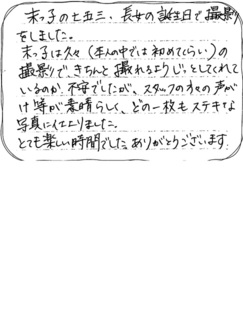 末っ子の七五三、長女の誕生日で撮影
をしました。
末っ子は久々(本人の中では初めてくらい)の
撮影で、きちんと撮れるようじっとしてくれて
いるのか不安でしたが、スタッフの方々の声が
け等が素晴らしく、どの一枚もステキな
写真に仕上りました。
とても楽しい時間でした。ありがとうございます